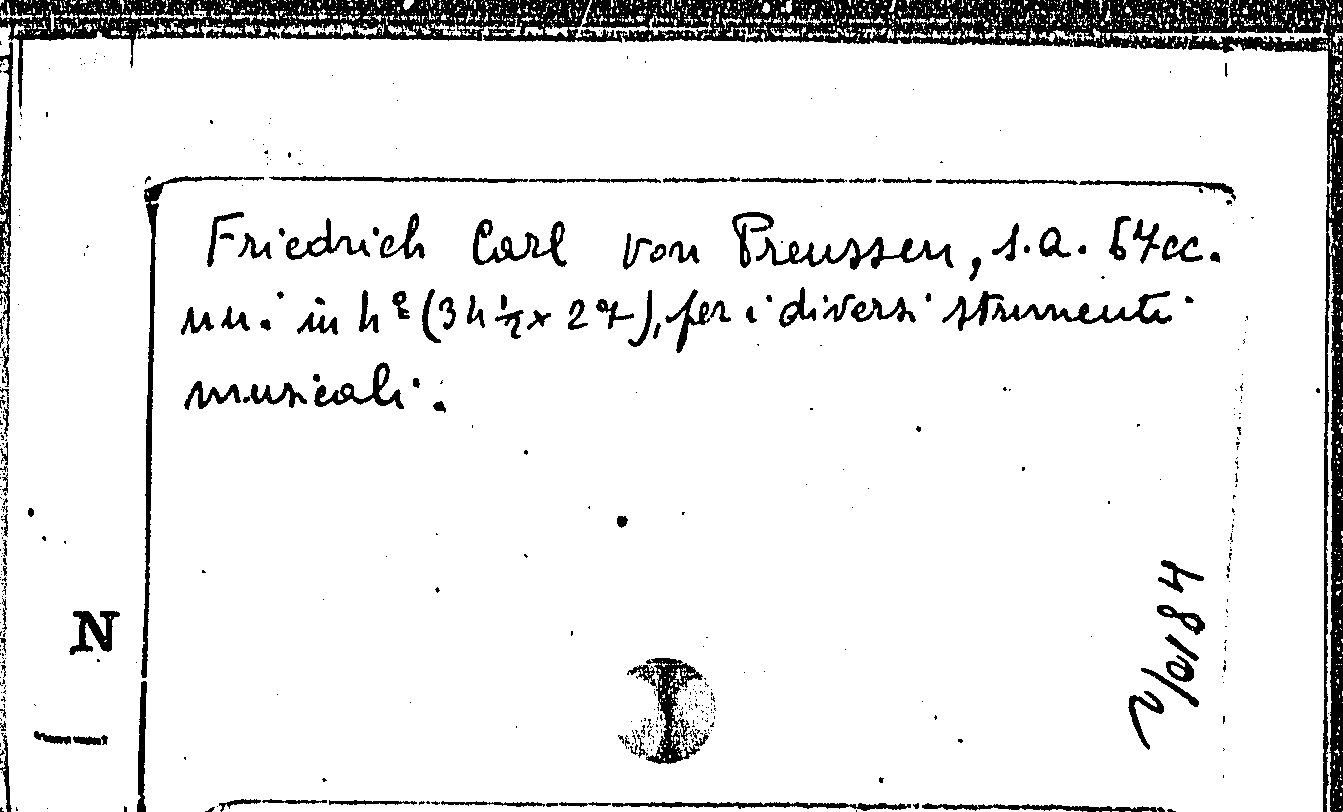 Friedrich Carl von Preussen, s.a. 57cc.
nn. in 4º (34 ½ x 27), per i diversi strumenti
musicali.
N